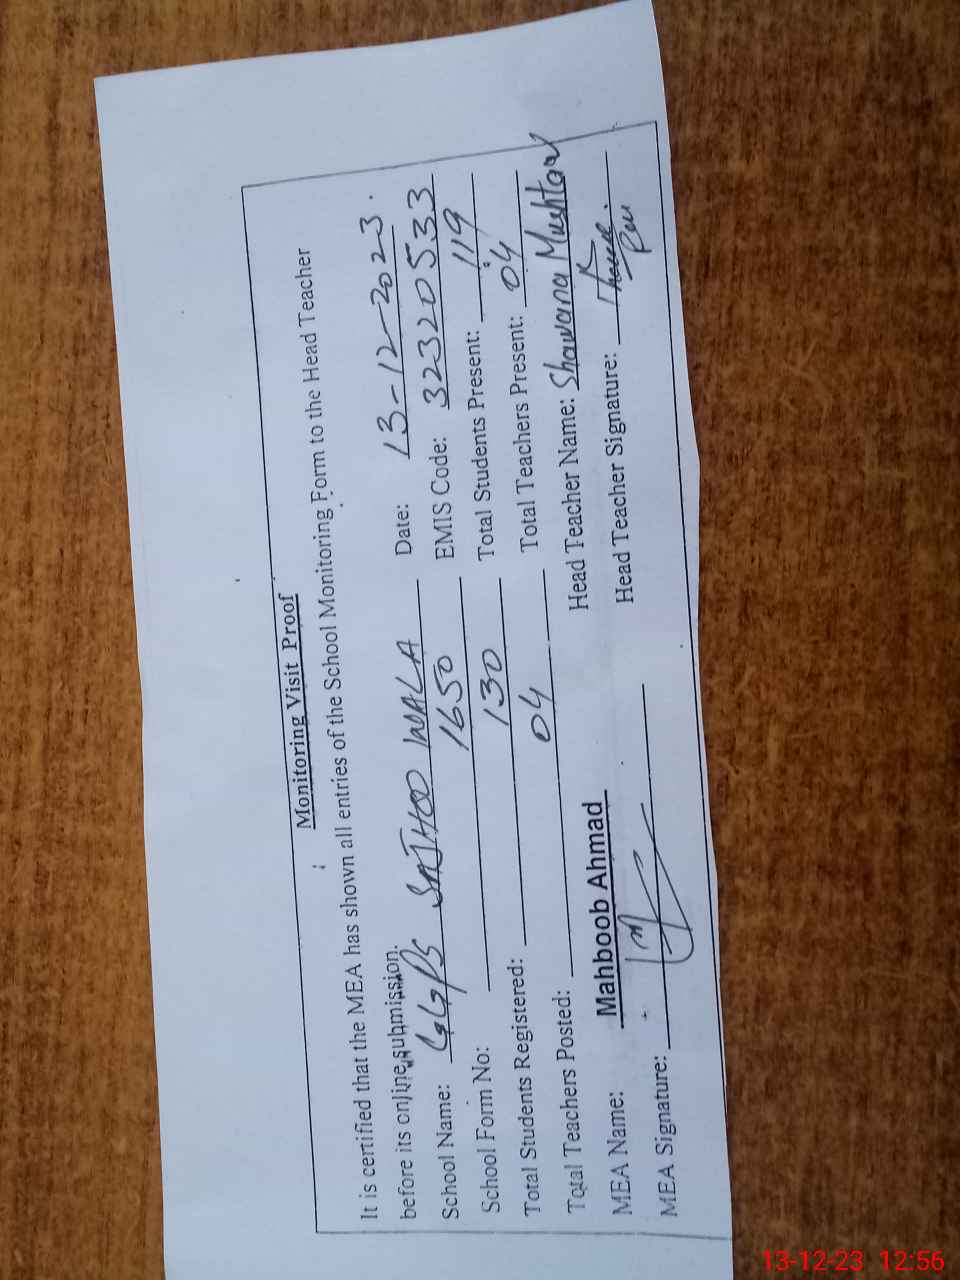 Monitoring Visit Proof
It is certified that the MEA has shown all entries of the School Monitoring Form to the Head Teacher
before its online submission.
School Name: GGPS SAJHOO WALA Date: 13-12-2023.
School Form No: 1650 EMIS Code: 32320533
Total Students Registered: 130 Total Students Present: 119
Total Teachers Posted: 04 Total Teachers Present: 04
MEA Name: Mahboob Ahmad Head Teacher Name: Shawana Mushtaq
MEA Signature: Head Teacher Signature:
13-12-23 12:56